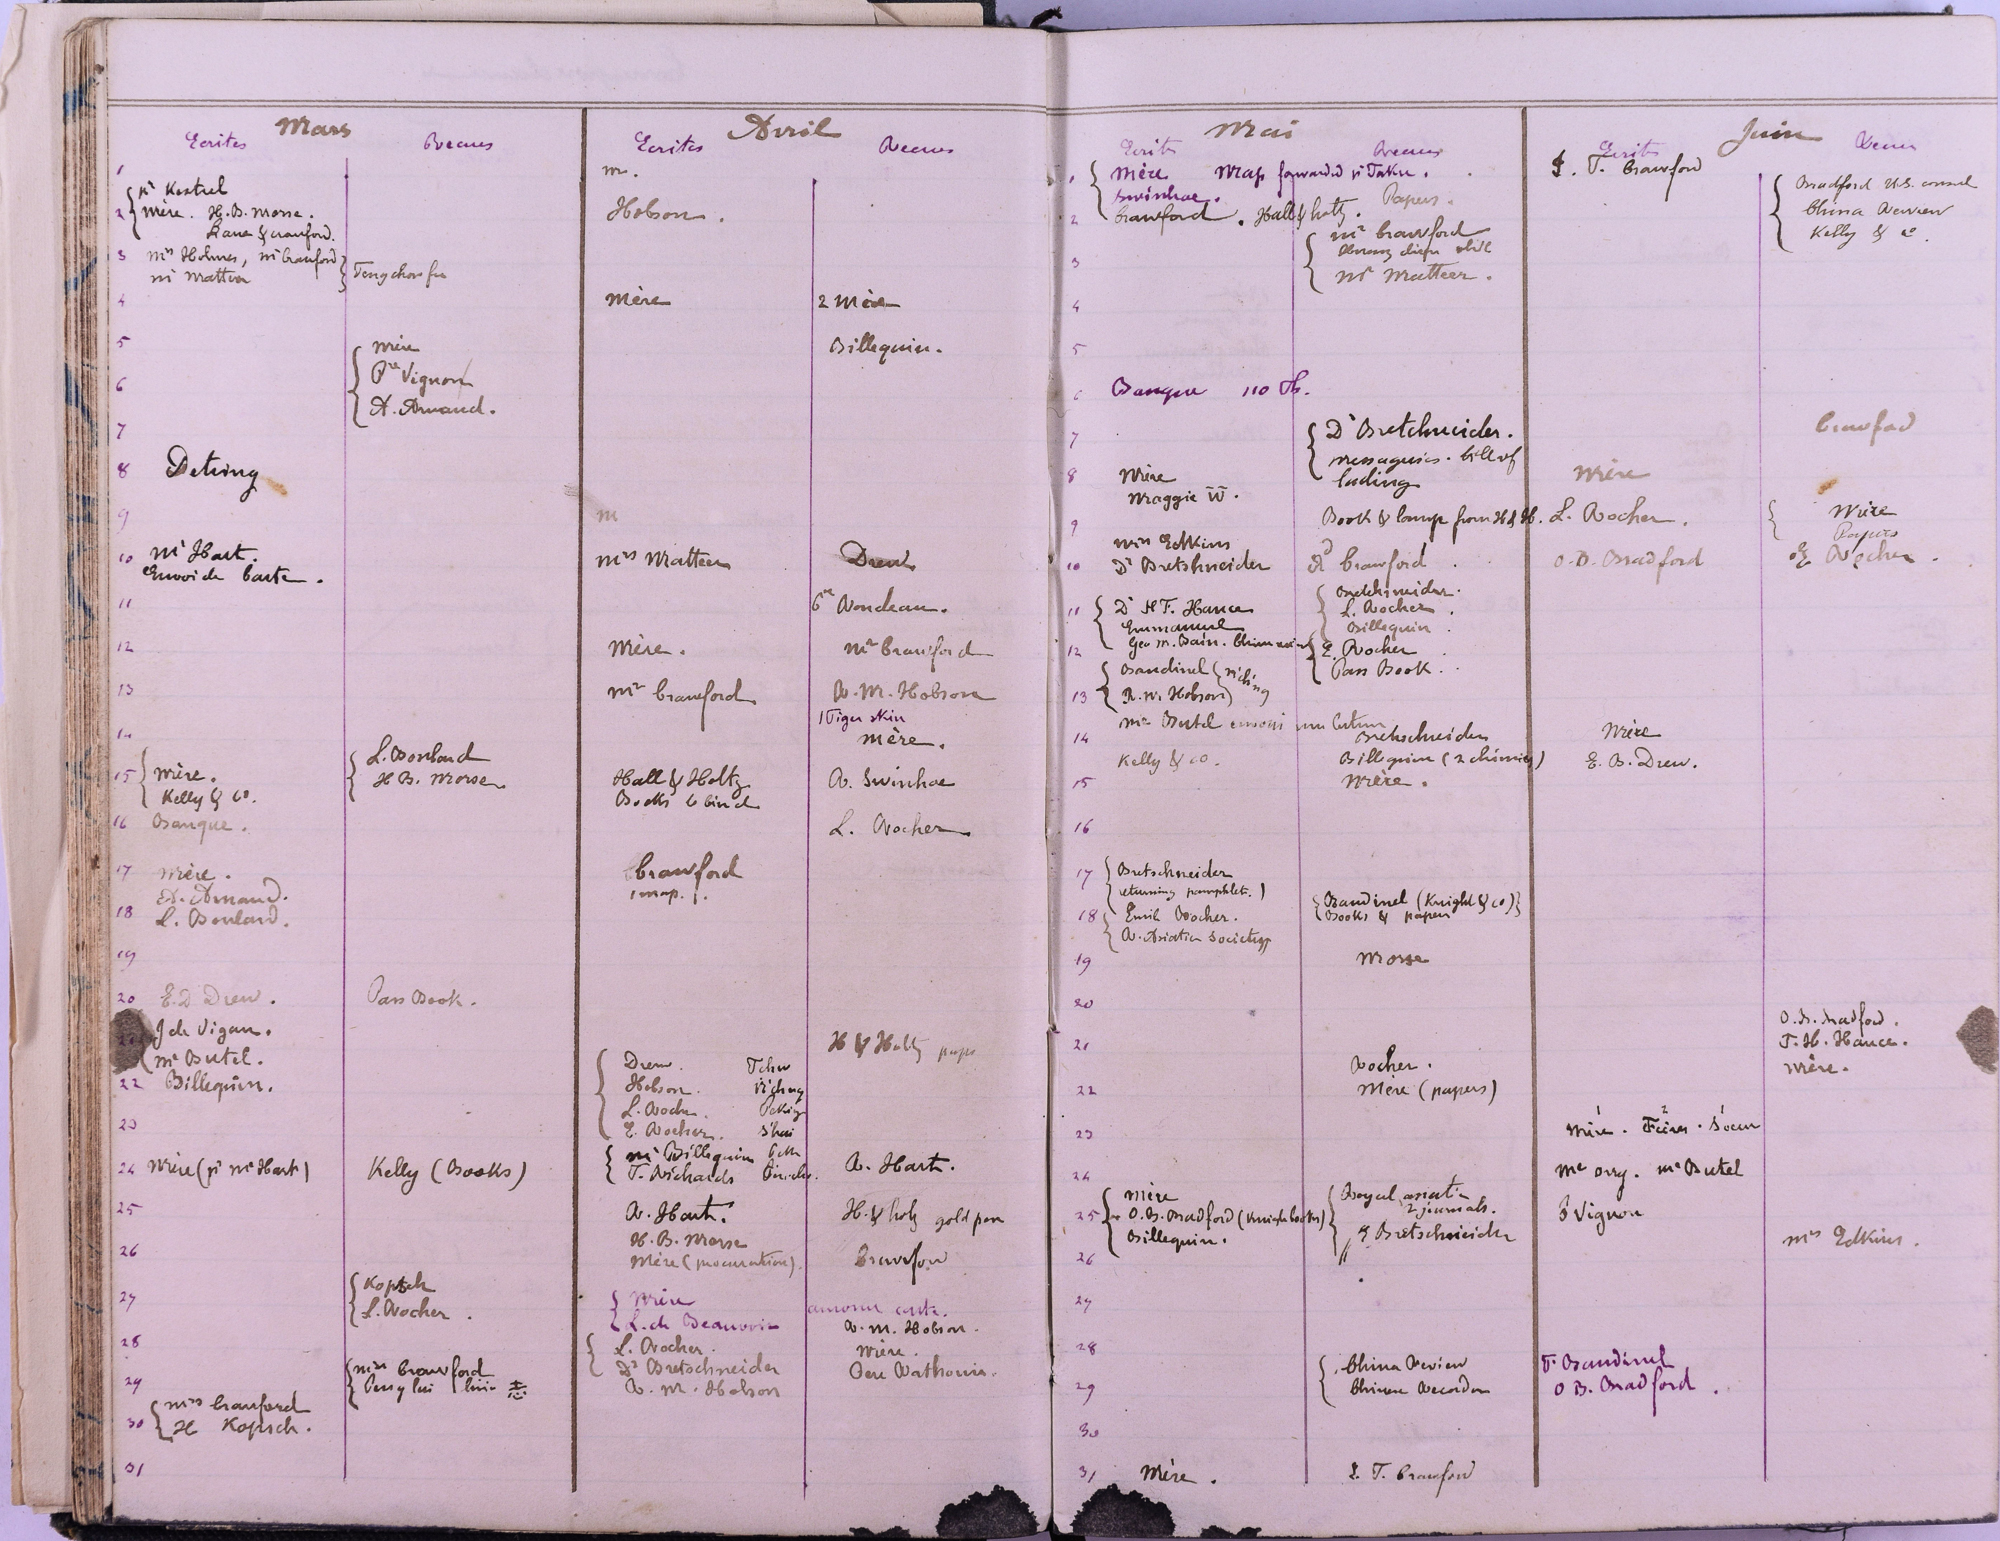 Mars
Ecrites Recues
1
2 pr Kestrel
Mère. H.B. Morse.
Lane & Crawford.
3 Mrs Holmes, Mr Crawford
Mr Matteer Tengchowfu
4
5 Mère
6 Pre Vignon
A. Arnaud.
7
8 Detring
9
10 Mr Hart.
Envoi de carte.
11
12
13
14
L. Boulard
15 Mère. H B. Morse
Kelly & Co.
16 Banque.
17 Mère.
A. Arnaud.
18 L. Boulard.
19
20 E. D Drew. Pass Book.
J de Vigan.
Mr Butel.
22 Billequin.
23
24 Mère (pr Mr Hart) Kelly (Books)
25
26
27 Kopsch
L. Rocher.
28
29 Mrs Crawford
30 Mrs Crawford
H Kopsch.
31
Avril
Ecrites Recues
m.
Hobson.
Mère 2 Mère
Billequin.
m
Mrs Matteer Drew
Rondeau.
Mère. Mr Crawford
Mr Crawford R. M. Hobson
1 Tiger skin
Mère.
Hall & Holtz R. Swinhoe
Books to bind
L. Rocher
Crawford
1 map.
H & Holtz
Drew.
Hobson.
L. Rocher. Peking
E. Rocher. S'hai
Mr Billequin
T. Richards A. Hart.
R. Hart. H. & Holtz gold pen
H. B. Morse
Mère (procuration). Crawford
Mère
L. de Beauvoir R. M. Hobson.
L. Rocher. Mère.
Dr Bretschneider
R. M. Hobson
Mai
Ecrits Recues
1 Mère Map forwarded pr Taku.
Swinhoe. Papers.
2 Crawford. Hall & Holtz.
Mr Crawford
3
Mr Matteer.
4
5
6 Banque 110 Th.
7 Dr Bretchneider.
messageries. bill of
8 Mère lading
Maggie W.
9 Book & lamp from H & H.
Mrs Edkins
10 Dr Bretshneider Crawford
11 Dr H F. Hance Bretchneider.
Emmanuel L. Rocher.
Billequin.
12 Geo M. Bain. E. Rocher
Bandinel Pass Book.
13 R. M. Hobson
Mr Butel
14 Bretschneider
Kelly & Co. Billequin
15 Mère.
16
17 Bretschneider
returning pamphlet.
18 Emile Rocher. Bandinel (Knight & Co)
R. Asiatic Society Books & papers
19 Morse
20
21 Rocher.
22 Mère (papers)
23
24
Mère
25 O. B. Bradford (Knight books) 2 journals.
Billequin. Bretschneider
26
27
28
China Review
29 Chinese Recorder
30
31 Mère. T. Crawford
Juin
Ecrits Recus
T. Crawford Bradford U.S. consul
China Review
Kelly & Co.
Crawford
Mère
L. Rocher. Mère
Papers
O. B. Bradford E Rocher.
Mère
E. B. Drew.
O. B. Bradford.
T. H. Hance.
Mère.
Mère. Frères. Soeur
Mr Butel
P Vignon
Mrs Edkins.
T. Bandinel
O B. Bradford.